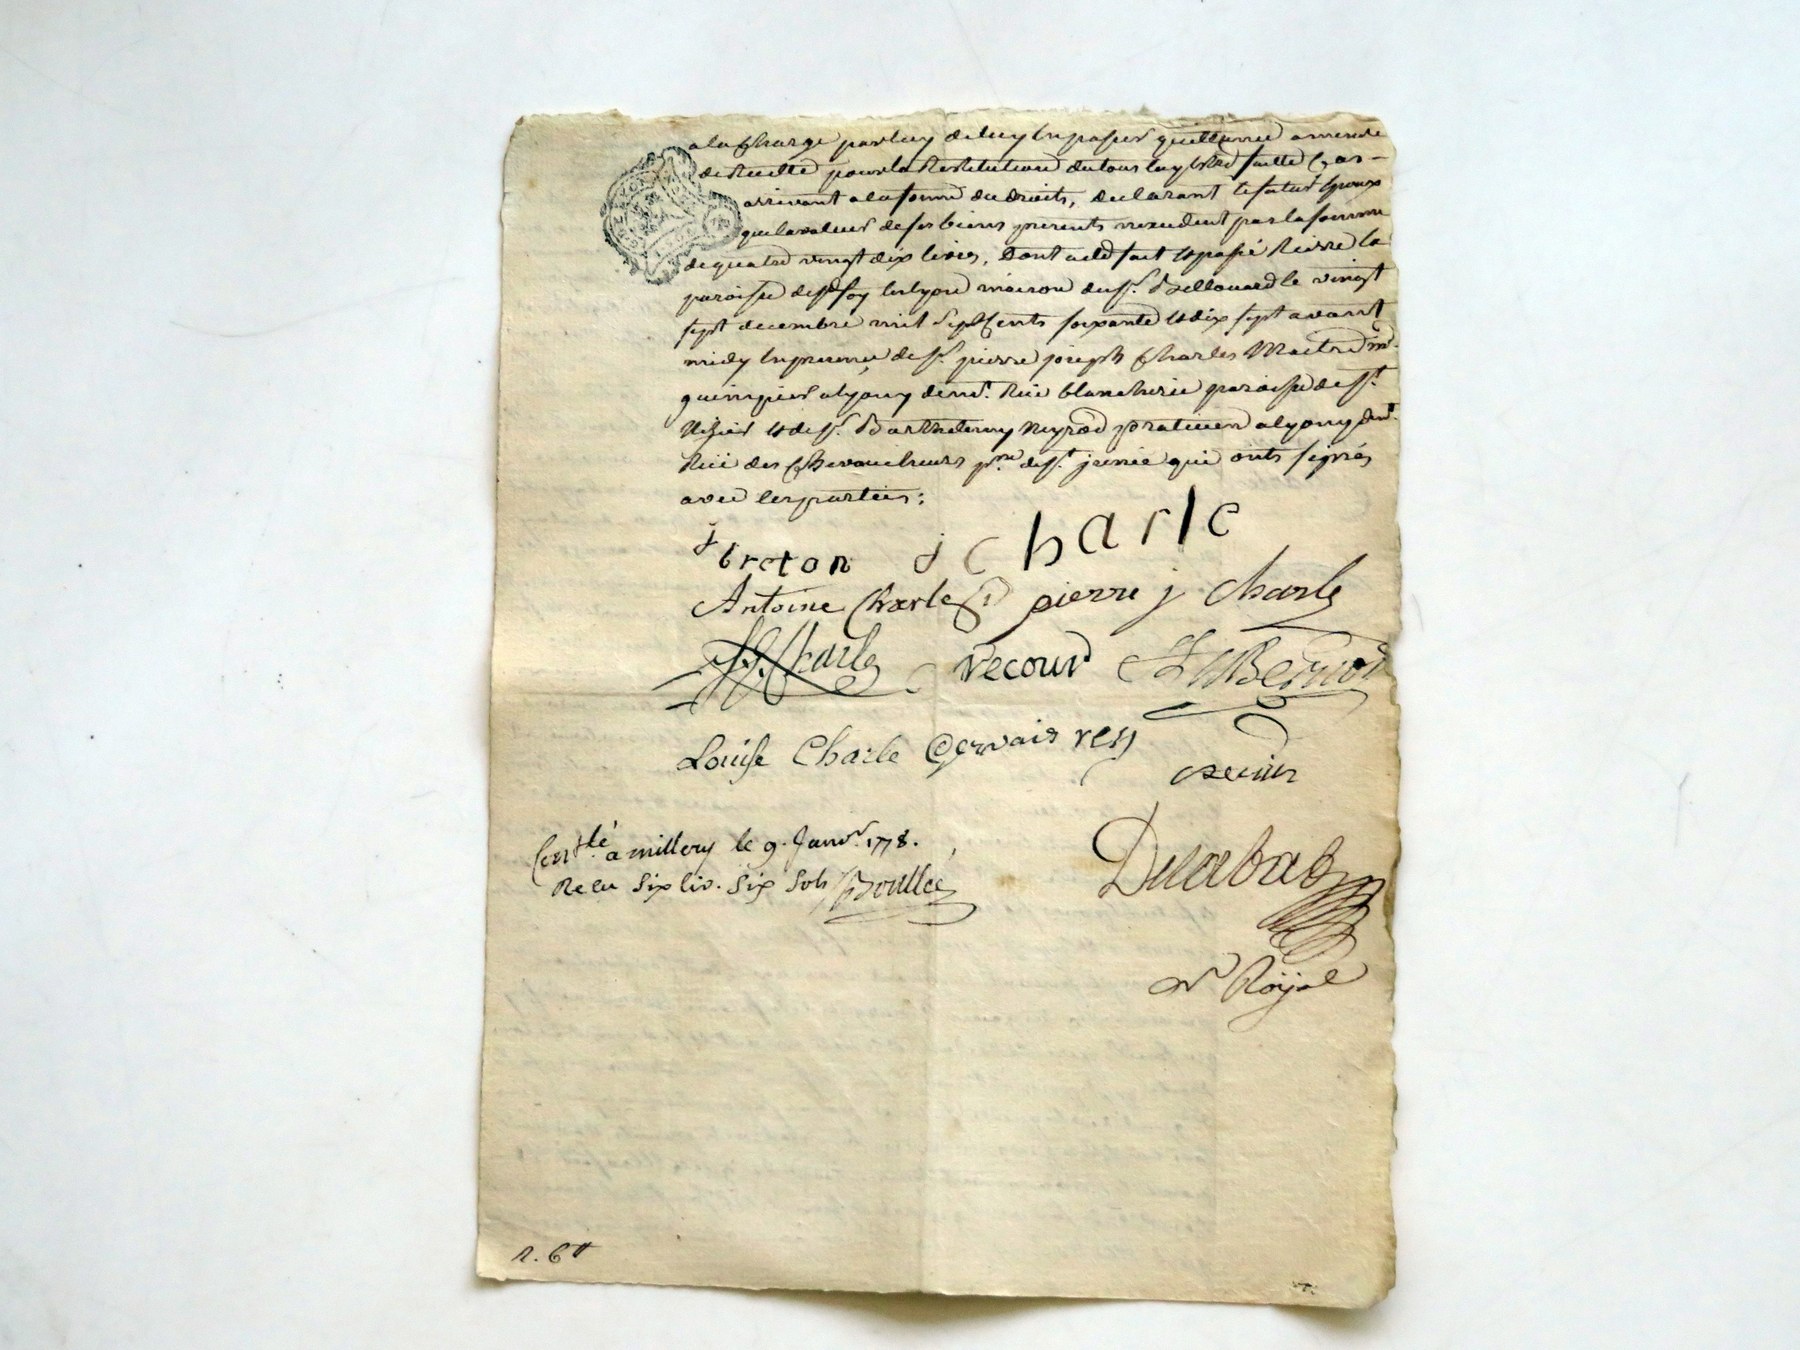 a la Charge par luy de luy en passer quittance
pour la Restitution du tout
arrivant a la forme du droits, declarant le futur Epoux
que la valeur de ses biens presents n'excedent pas la somme
de quatre vingt dix livres, Dont acte fait et passé Rierre la
paroisse de Ste foy les lyon maison du Sr. Bellouard le vingt
sept decembre mil Sept Cents soixante et dix sept avant
midy En presence de Sr. pierre joseph Charles Maitre
a lyon y demt. Rüe blancherie paroisse de St.
Nizier et de Sr. Barthelemy praticien a lyon y demt.
Rüe des Chevaucheurs prse de St. jrenée qui onts signés
avec les parties:
j breton j Charle
Antoine Charle pierre j Charle
Charle recour
Louise Charle Gervais rey
Conslé a millery le 9. Janvr. 1778.
Recu Six liv. Six Sols Boullée
Nre Royal
R. 6